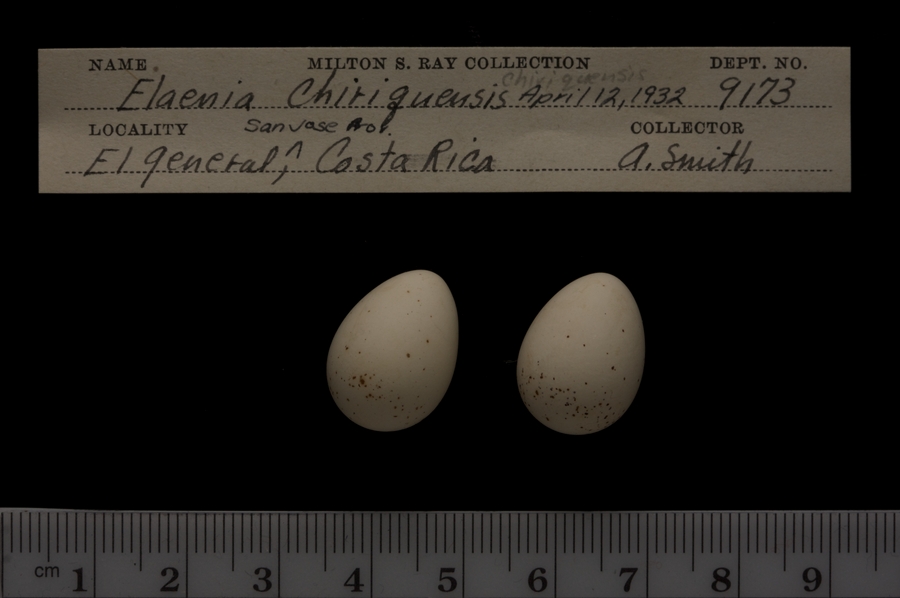 NAME. MILTON S. RAY COLLECTION DEPT. NO.
chiriquensis
Elaenia Chiriquensis April 12, 1932 9173
LOCALITY San Jose Prov. COLLECTOR
El General, ^ Costa Rica A. Smith
cm 1 2 3 4 5 6 7 8 9